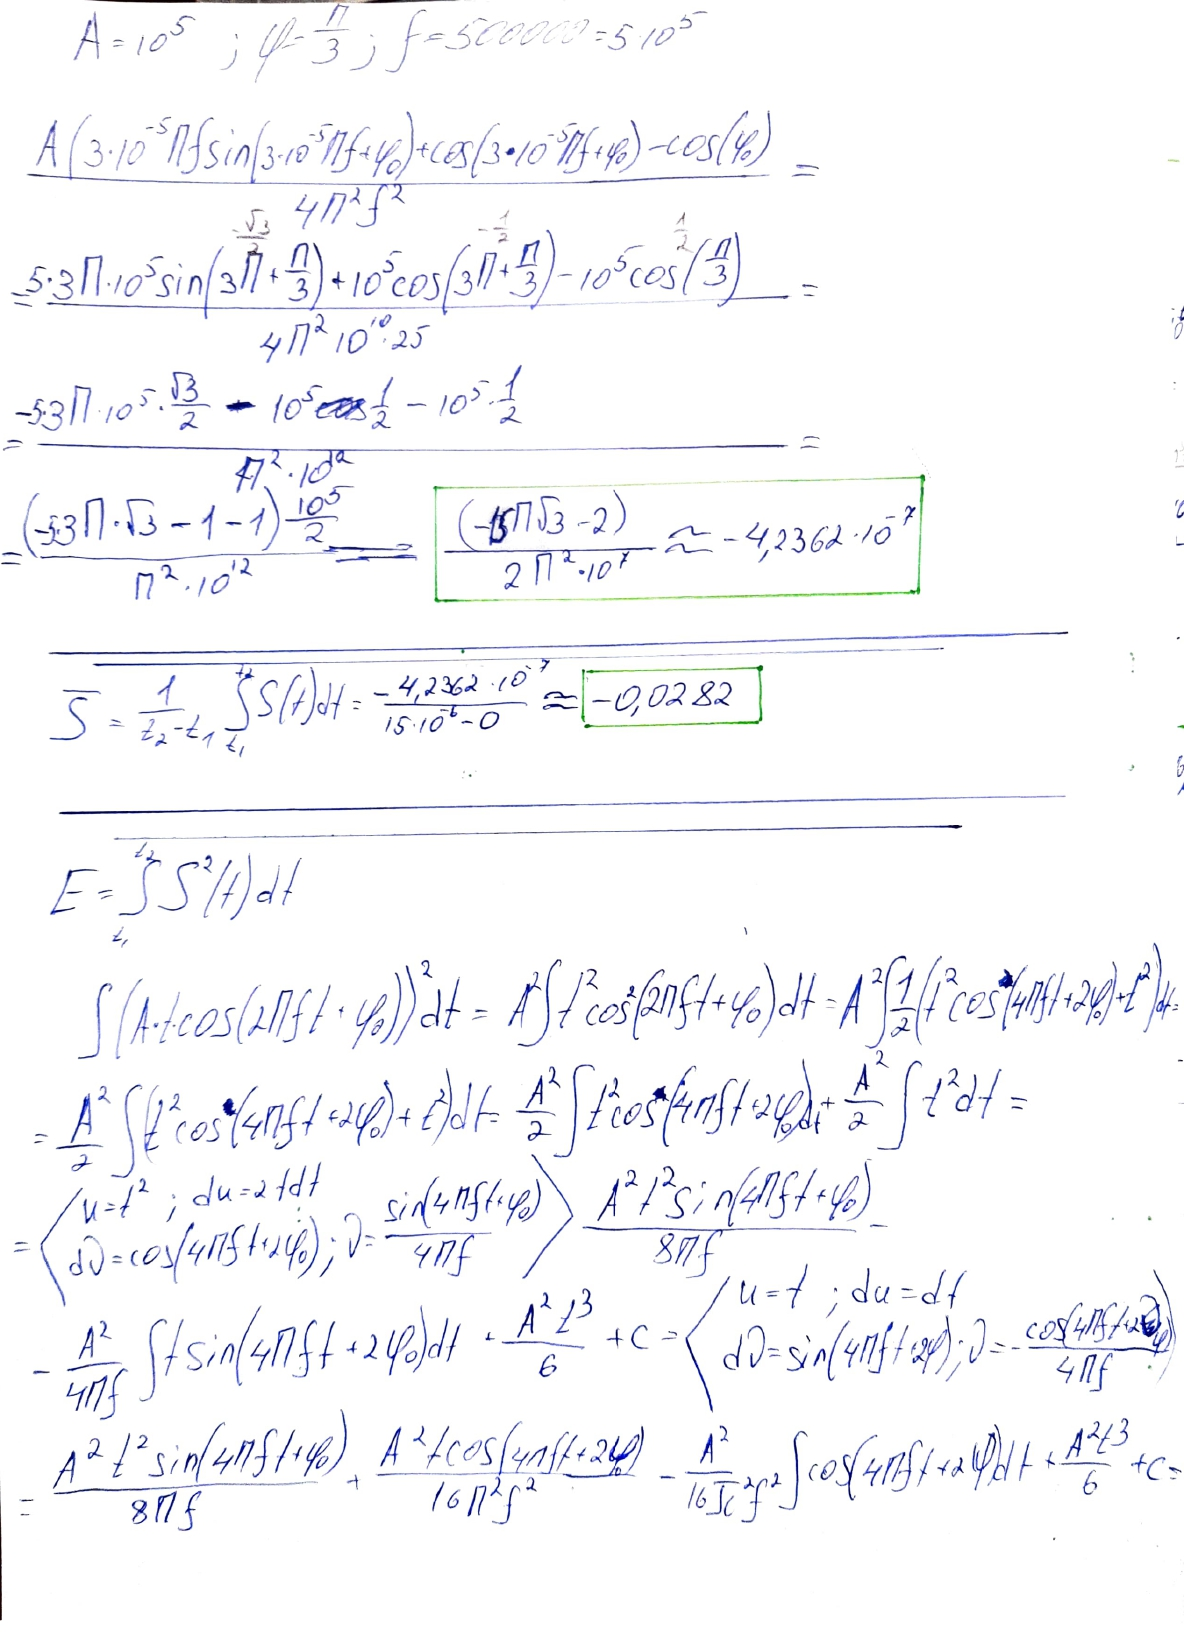 A = 10⁵ ; φ = П/3 ; f = 500000 = 5·10⁵
A(3·10⁻⁵Пf sin(3·10⁻⁵Пf+φ₀)+cos(3·10⁻⁵Пf+φ₀) − cos(φ₀)) / 4П²f² =
-√3/2 -1/2 1/2
= 5·3П·10⁵ sin(3П+П/3)+10⁵cos(3П+П/3) − 10⁵cos(П/3) / 4П²10¹⁰·25 =
= -5·3П·10⁵·√3/2 - 10⁵ 1/2 − 10⁵·1/2 / П²·10¹² =
= (-5·3П·√3 − 1 − 1) 10⁵/2 / П²·10¹² = (-15П√3 − 2) / 2П²·10⁷ ≈ −4,2362·10⁻⁷
S̅ = 1/(t₂−t₁) ∫ₜ₁ᵗ² S(t)dt = −4,2362·10⁻⁷ / 15·10⁻⁶−0 ≈ −0,0282
E = ∫ₜ₁ᵗ² S²(t)dt
∫(A·t·cos(2Пft + φ₀))²dt = A²∫t²cos²(2Пft+φ₀)dt = A²∫1/2(t²cos(4Пft+2φ₀)+t²)dt =
= A²/2 ∫(t²cos(4Пft+2φ₀)+t²)dt = A²/2 ∫t²cos(4Пft+2φ₀)dt + A²/2 ∫t²dt =
= ⟨u=t² ; du=2tdt dυ=cos(4Пft+2φ₀); υ= sin(4Пft+φ₀)/4Пf⟩ A²t²sin(4Пft+φ₀)/8Пf −
− A²/4Пf ∫t sin(4Пft+2φ₀)dt + A²t³/6 + c = ⟨u=t ; du=dt dυ=sin(4Пft+2φ); υ=−cos(4Пft+2φ)/4Пf⟩
= A²t²sin(4Пft+φ₀)/8Пf + A²tcos(4Пft+2φ)/16П²f² − A²/16π²f² ∫cos(4Пft+2φ)dt + A²t³/6 + c =